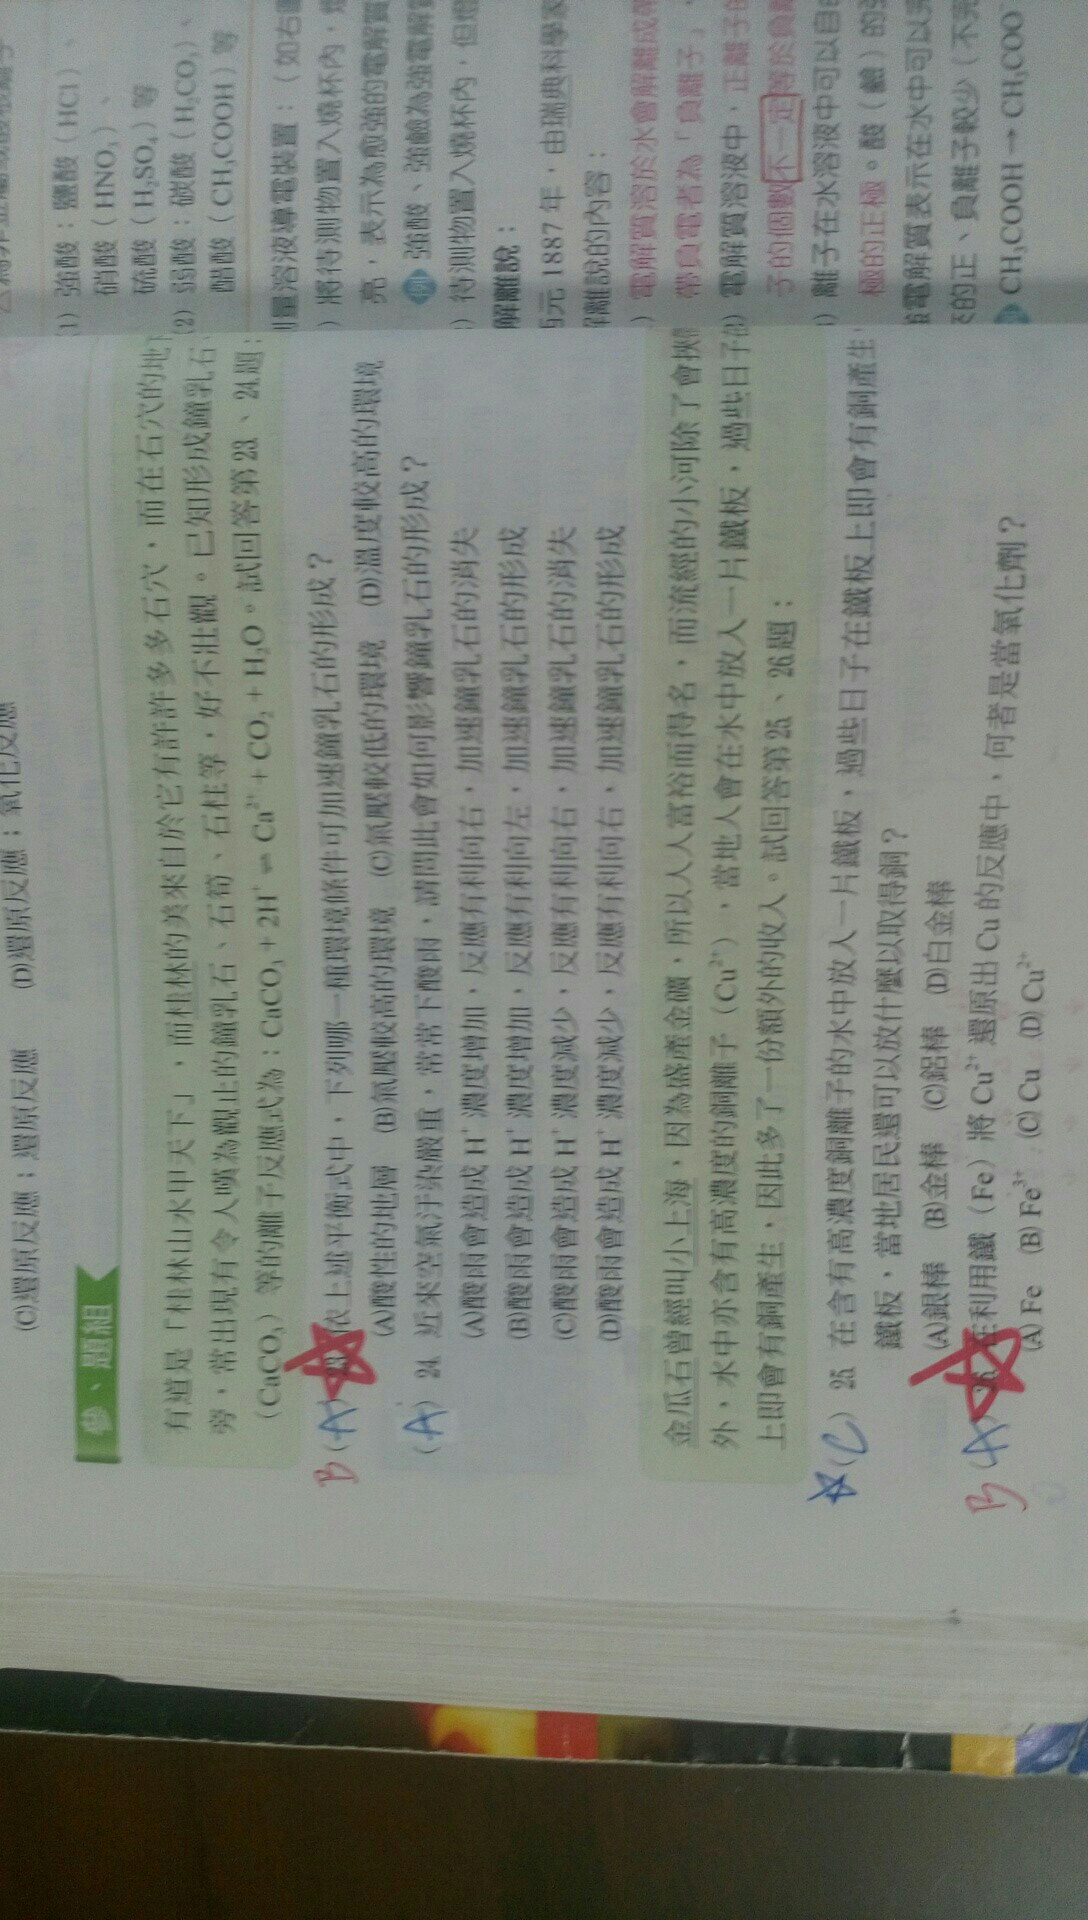 (C)還原反應；還原反應　(D)還原反應；氧化反應
參、題組
有道是「桂林山水甲天下」，而桂林的美來自於它有許許多多石穴，而在石穴的地
旁，常出現有令人嘆為觀止的鐘乳石、石筍、石柱等，好不壯觀。已知形成鐘乳石
(CaCO₃) 等的離子反應式為：CaCO₃ + 2H⁺ ⇌ Ca²⁺ + CO₂ + H₂O。試回答第 23、24 題：
B (A) 23. 依上述平衡式中，下列哪一種環境條件可加速鐘乳石的形成？
(A)酸性的地層　(B)氣壓較高的環境　(C)氣壓較低的環境　(D)溫度較高的環境
(A) 24. 近來空氣汙染嚴重，常常下酸雨，請問此會如何影響鐘乳石的形成？
(A)酸雨會造成 H⁺ 濃度增加，反應有利向右，加速鐘乳石的消失
(B)酸雨會造成 H⁺ 濃度增加，反應有利向左，加速鐘乳石的形成
(C)酸雨會造成 H⁺ 濃度減少，反應有利向右，加速鐘乳石的消失
(D)酸雨會造成 H⁺ 濃度減少，反應有利向右，加速鐘乳石的形成
金瓜石曾經叫小上海，因為盛產金礦，所以人人富裕而得名，而流經的小河除了會挾
外，水中亦含有高濃度的銅離子（Cu²⁺），當地人會在水中放入一片鐵板，過些日子
上即會有銅產生，因此多了一份額外的收入。試回答第 25、26 題：
(C) 25. 在含有高濃度銅離子的水中放入一片鐵板，過些日子在鐵板上即會有銅產生
鐵板，當地居民還可以放什麼以取得銅？
(A)銀棒　(B)金棒　(C)鋁棒　(D)白金棒
B (A) 26. 在利用鐵（Fe）將 Cu²⁺ 還原出 Cu 的反應中，何者是當氧化劑？
(A) Fe　(B) Fe³⁺　(C) Cu　(D) Cu²⁺
(1) 強酸：鹽酸（HCl）、
硝酸（HNO₃）、
硫酸（H₂SO₄）等
(2) 弱酸：碳酸（H₂CO₃）、
醋酸（CH₃COOH）等
量溶液導電裝置：（如右
）將待測物置入燒杯內，
亮，表示為愈強的電解質
例 強酸、強鹼為強電解
）待測物置入燒杯內，但燈
解離說：
西元 1887 年，由瑞典科學家
解離說的內容：
電解質溶於水會解離成帶
帶負電者為「負離子」，
電解質溶液中，正離子
子的個數不一定等於負
離子在水溶液中可以自
極的正極。酸（鹼）的強
電解質表示在水中可以完
的正、負離子較少（不完
CH₃COOH → CH₃COO⁻